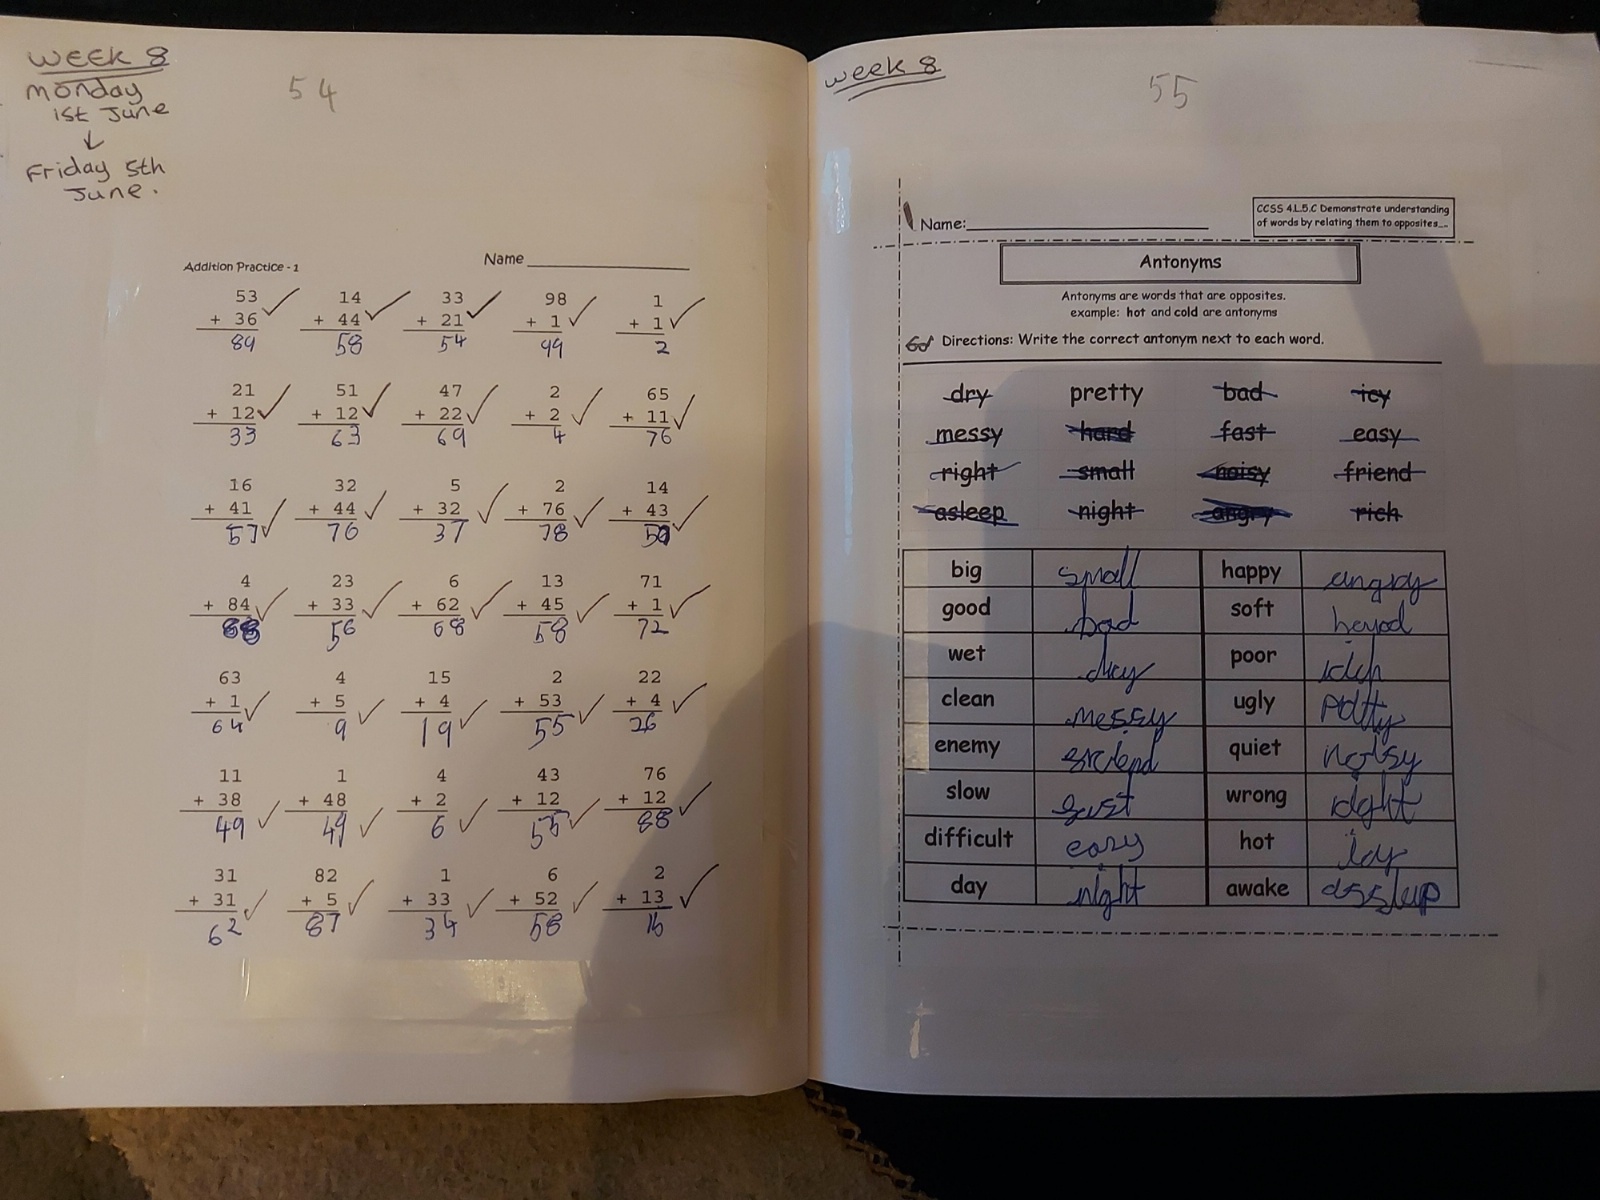 WEEK 8
monday
1st June
↓
Friday 5th
June.
54
Addition Practice - 1
Name
53 14 33 98 1
+ 36 + 44 + 21 + 1 + 1
89 58 54 99 2
21 51 47 2 65
+ 12 + 12 + 22 + 2 + 11
33 63 69 4 76
16 32 5 2 14
+ 41 + 44 + 32 + 76 + 43
57 76 37 78
4 23 6 13 71
+ 84 + 33 + 62 + 45 + 1
88 56 68 58 72
63 4 15 2 22
+ 1 + 5 + 4 + 53 + 4
64 9 19 55 26
11 1 4 43 76
+ 38 + 48 + 2 + 12 + 12
49 49 6 55 88
31 82 1 6 2
+ 31 + 5 + 33 + 52 + 13
62 87 34 58 15
week 8
55
Name:
CCSS 4.L.5.C Demonstrate understanding
of words by relating them to opposites...
Antonyms
Antonyms are words that are opposites.
example: hot and cold are antonyms
Directions: Write the correct antonym next to each word.
dry pretty bad icy
messy hard fast easy
right small noisy friend
asleep night angry rich
big small happy
good bad soft
wet poor
clean messy ugly
enemy quiet noisy
slow wrong
difficult easy hot icy
day night awake